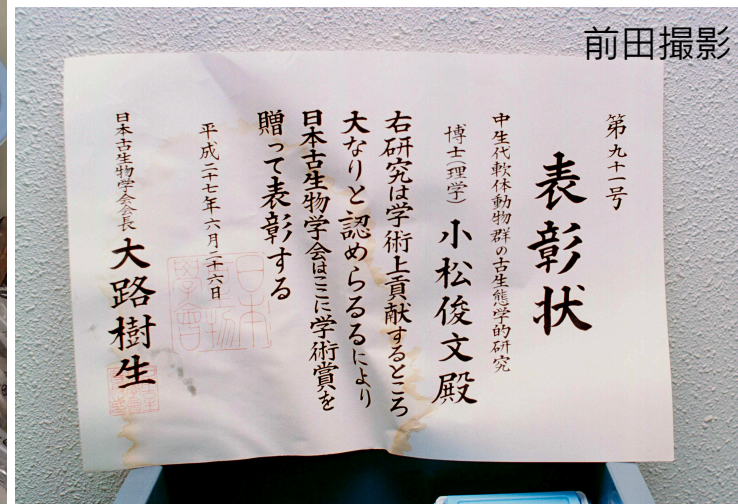 前田撮影
第九十一号
表彰状
中生代軟体動物群の古生態学的研究
博士(理学) 小松俊文殿
右研究は学術上貢献するところ
大なりと認めらるるにより
日本古生物学会はここに学術賞を
贈って表彰する
平成二十七年六月二十六日
日本古生物学会会長 大路樹生
日本古生物學會